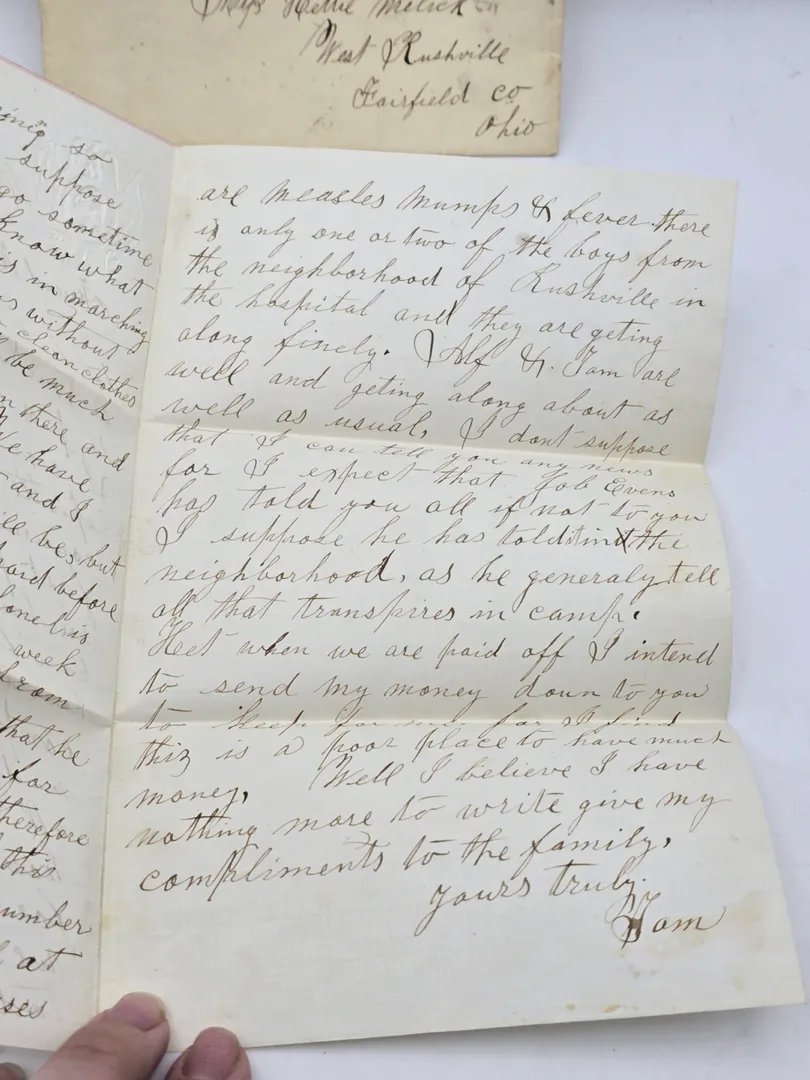 Hettie Melick
West Rushville
Fairfield co
Ohio
so
suppose
go sometime
know what
is in marching
without
clean clothes
be much
there and
We have
and I
but
before
is
week
from
that he
for
therefore
this
number
at
are measles mumps & fever. there
is only one or two of the boys from
the neighborhood of Rushville in
the hospital and they are geting
along finely. Alf &. Tom are
well and geting along about as
well as usual, I dont suppose
that I can tell you any news
for I expect that Job Evens
has told you all if not to you
I suppose he has told it in the
neighborhood, as he generaly tell
all that transpires in camp.
Het when we are paid off I intend
to send my money down to you
to keep for me for I find
this is a poor place to have much
money, Well I believe I have
nothing more to write give my
compliments to the family,
yours truly.
Tom